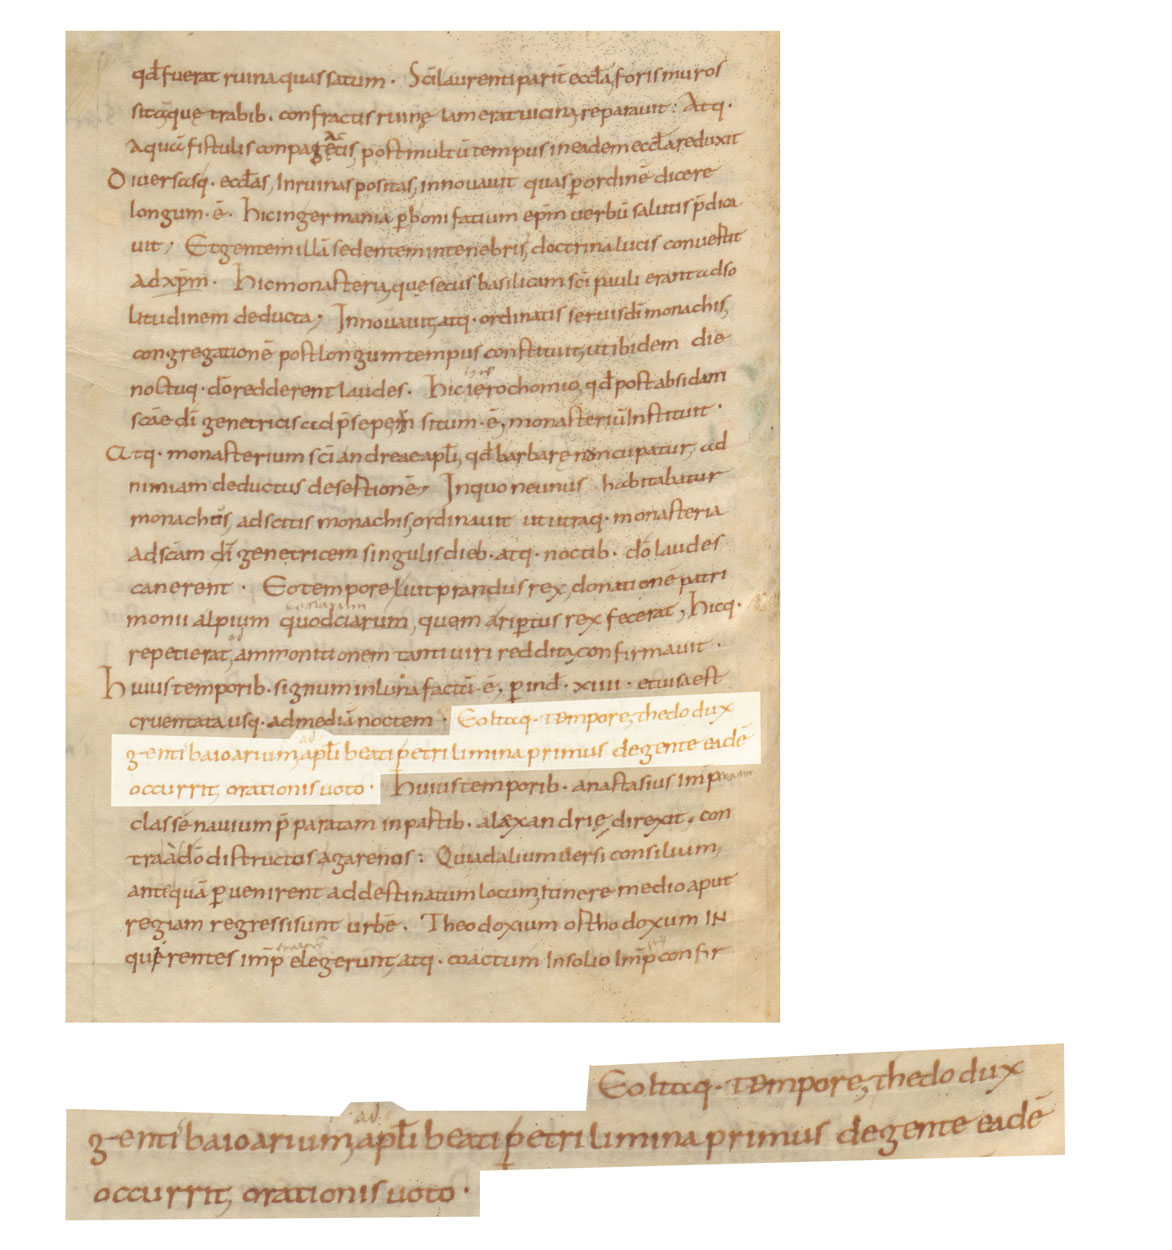 qđ fuerat ruina quassatum. Sc̄i laurenti parit̄ eccła, foris muros
sitā, quę trabib. confractis ruinę iam erat uicina, reparauit: Atq.
Aquā fistulis conpagectis, post multū tempus in eadem eccła, reduxit
Diuersasq. ecclas, In ruinas positas, innouauit quas ꝑ ordinē dicere
longum. ē. hic in germania ꝑ bonifatium ep̄m uerbū salutis p̄dica
uit; Et gentem illā sedentem in tenebris, doctrina lucis conuertit
ad xp̄m. hic monasteria, que secus basilicam sc̄i pauli erant ad so
litudinem deducta; Innouauit, atq. ordinatis seruis dī monachis,
congregationē post longum tempus constituit, ut ibidem die
noctuq. dō redderent laudes. hic ierochomio, qđ post absidam
scāe dī genetricis ad p̄sepem situm. ē, monasteriū Instituit.
Atq. monasterium sc̄i andreae apłi, qđ barbarę nuncupatur, ad
nimiam deductus desertionē; In quo ne unus habitabatur
monachus, adscitis monachis, ordinauit ut utraq. monasteria
ad scām dī genetricem singulis dieb. atq. noctib. dō laudes
canerent. Eo tempore liutprandus rex, donationē patri
monii alpium quodciarum, quem aripertus rex fecerat, hicq.
repetierat, ammonitionem tanti uiri reddita, confirmauit.
huius temporib. signum in luna factū. ē, ꝑ ind. xiiii. et uisa est
cruentata usq. ad mediā noctem. Eo itaq. tempore, thedo dux
genti baioarium, ad apłi beati petri limina primus de gente eadē
occurrit, orationis uoto. huius temporib. anastasius imp̄
classē nauium p̄paratam in partib. alæxandrię, direxit, con
tra a dō distructos agarenos: Qui ad alium uersi consilium,
antequā ꝑuenirent ad destinatum locum, Itinere medio aput
regiam regressi sunt urbē. Theodoxium osthodoxum IN
querentes imp̄ elegerunt, atq. coactum In solio Imp̄ confir
Eo itaq. tempore, thedo dux
ad
genti baioarium, apłi beati petri limina primus de gente eadē
occurrit, orationis uoto.